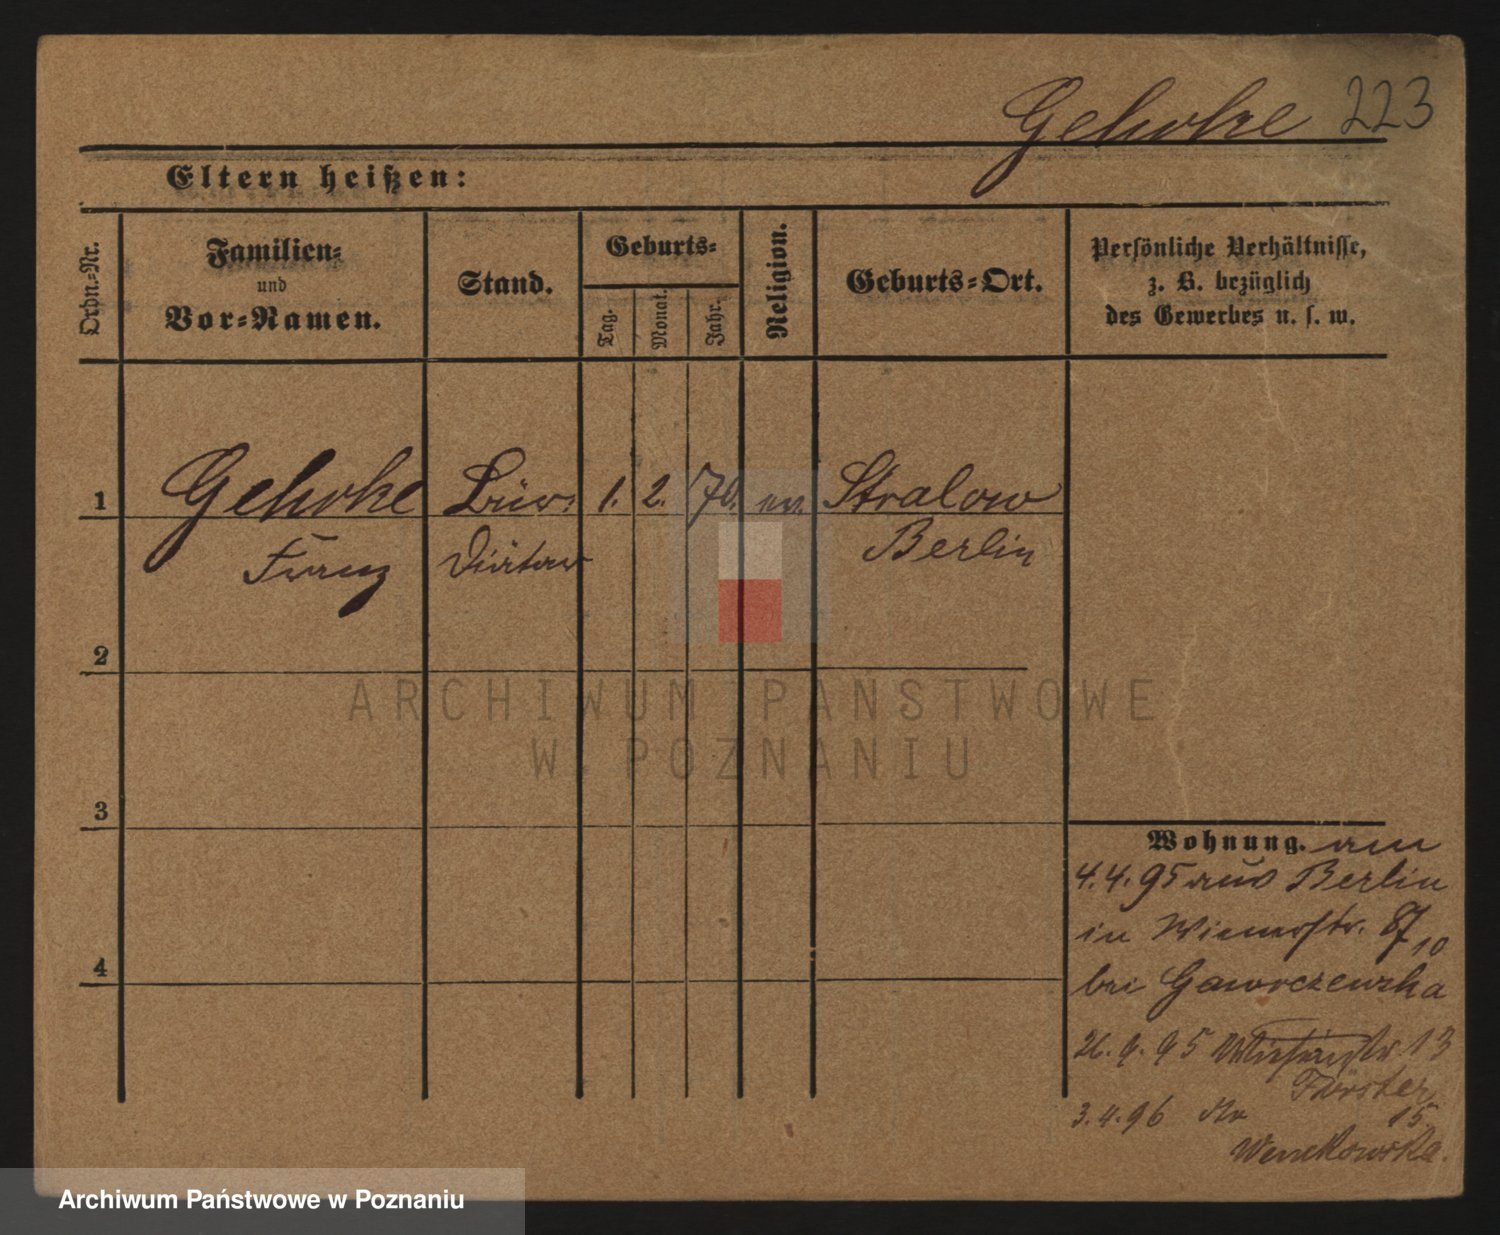 Gehrke 223
Eltern heißen:
Ordn.-Nr.
Familien-
und
Vor-Namen.
Stand.
Geburts-
Tag.
Monat.
Jahr.
Religion.
Geburts-Ort.
Persönliche Verhältnisse,
z. B. bezüglich
des Gewerbes u. s. w.
1 Gehrke Bür. 1. 2. 70. ev. Stralow
Franz Diätar Berlin
2
3
4
Wohnung. am
4. 4. 95 aus Berlin
in Wienerstr. 87 10
bei Gaworczewska
26. 9. 95 13
Förster
3. 4. 96 15.
ARCHIWUM PAŃSTWOWE
W POZNANIU
Archiwum Państwowe w Poznaniu